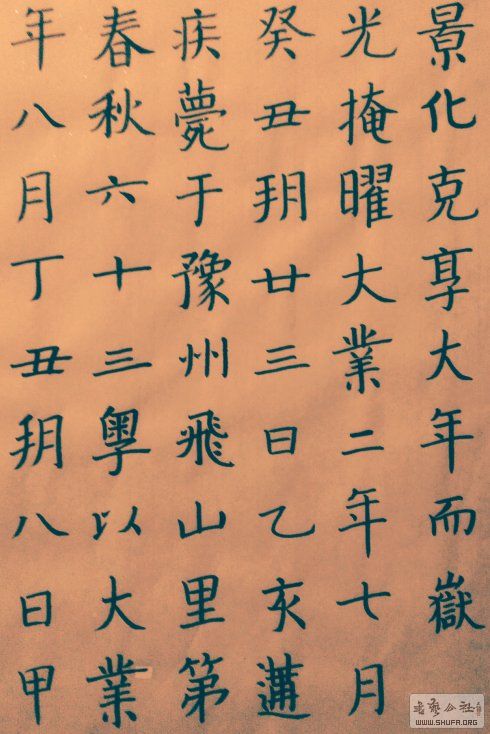 景化克享大年而嶽
光掩曜大業二年七月
癸丑朔廿三日乙亥遘
疾薨于豫州飛山里第
春秋六十三粵以大業
年八月丁丑朔八日甲
WWW.SHUFA.ORG